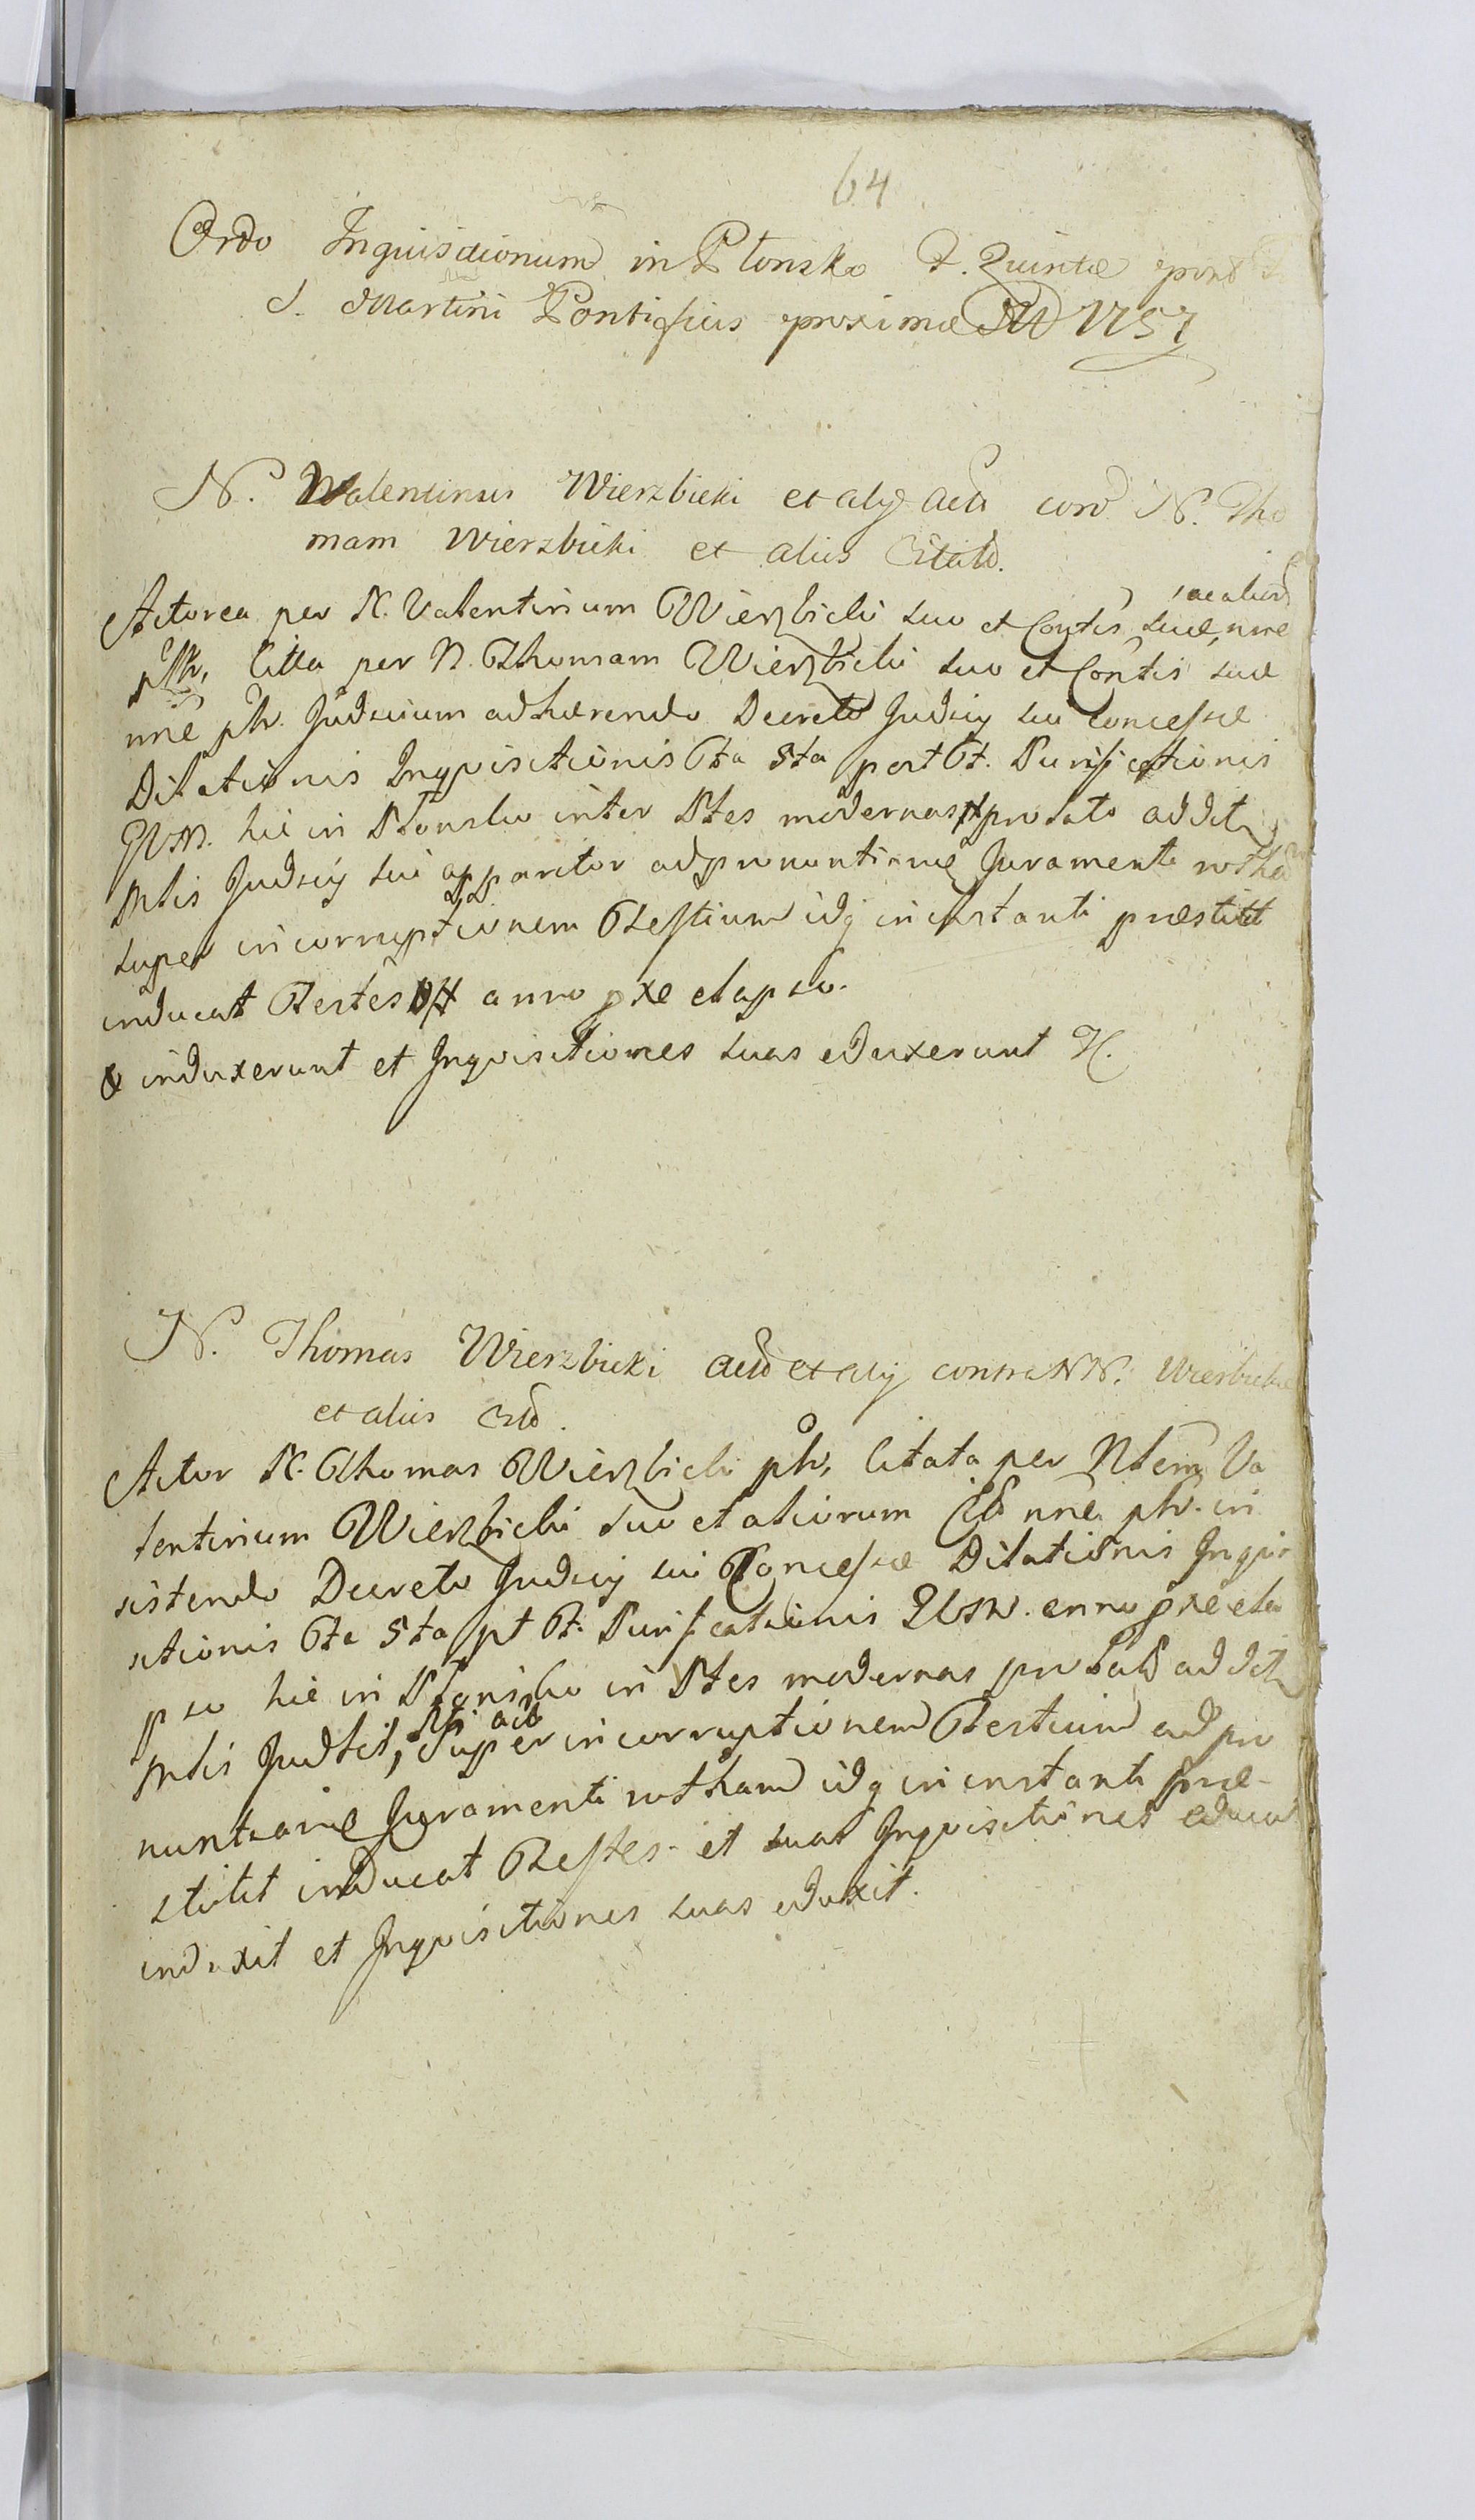 64
Ordo Inquisitionum in Płonsko F. Quinta post F
S. Martini Pontificis proxima AD 1757
N. Valentinus Wierzbicki et alij Act contr N. Tho
mam Wierzbicki et alios Citatos.
Actorea per N. Valentinum Wierzbicki suo et Contis suæ, ac alior nne
pth, Citta per N. Thomam Wierzbicki suo et Contis suæ
nne pth. Judicium adhærendo Decreto Judicij sui concessæ
Dilationis Inqvisitionis fra 5ta post F. Purificationis
hic in Płonsko inter Ptes modernas prolato addit
Ptis Judicij sui apparitor ad pronuntianæ Juramenti rotham
super incorruptionem Testium idq in instanti præstitit
inducat Testes anno pxe elapso.
& induxerunt et Inqvisitiones suas eduxerunt
N. Thomas Wierzbicki Act et alij contra NN. Wierbickie
et alios
Actor N. Thomas Wierzbicki pth, Citata per Nlem Va
lentinum Wierzbicki suo et aliorum nne pth. in
sistendo Decreto Judicij sui Concessæ Dilationis Inqvi
sitionis fra 5ta pt F. Purificationis anno pxe ela
pso hic in Płonsko in Ptes modernas prolato addit
Ptis super incorruptionem Testium ad pro
nuntianæ Juramenti rotham idq in instanti præ-
stitit inducat Testes et suas Inqvisitiones educat
induxit et Inqvisitiones suas eduxit.